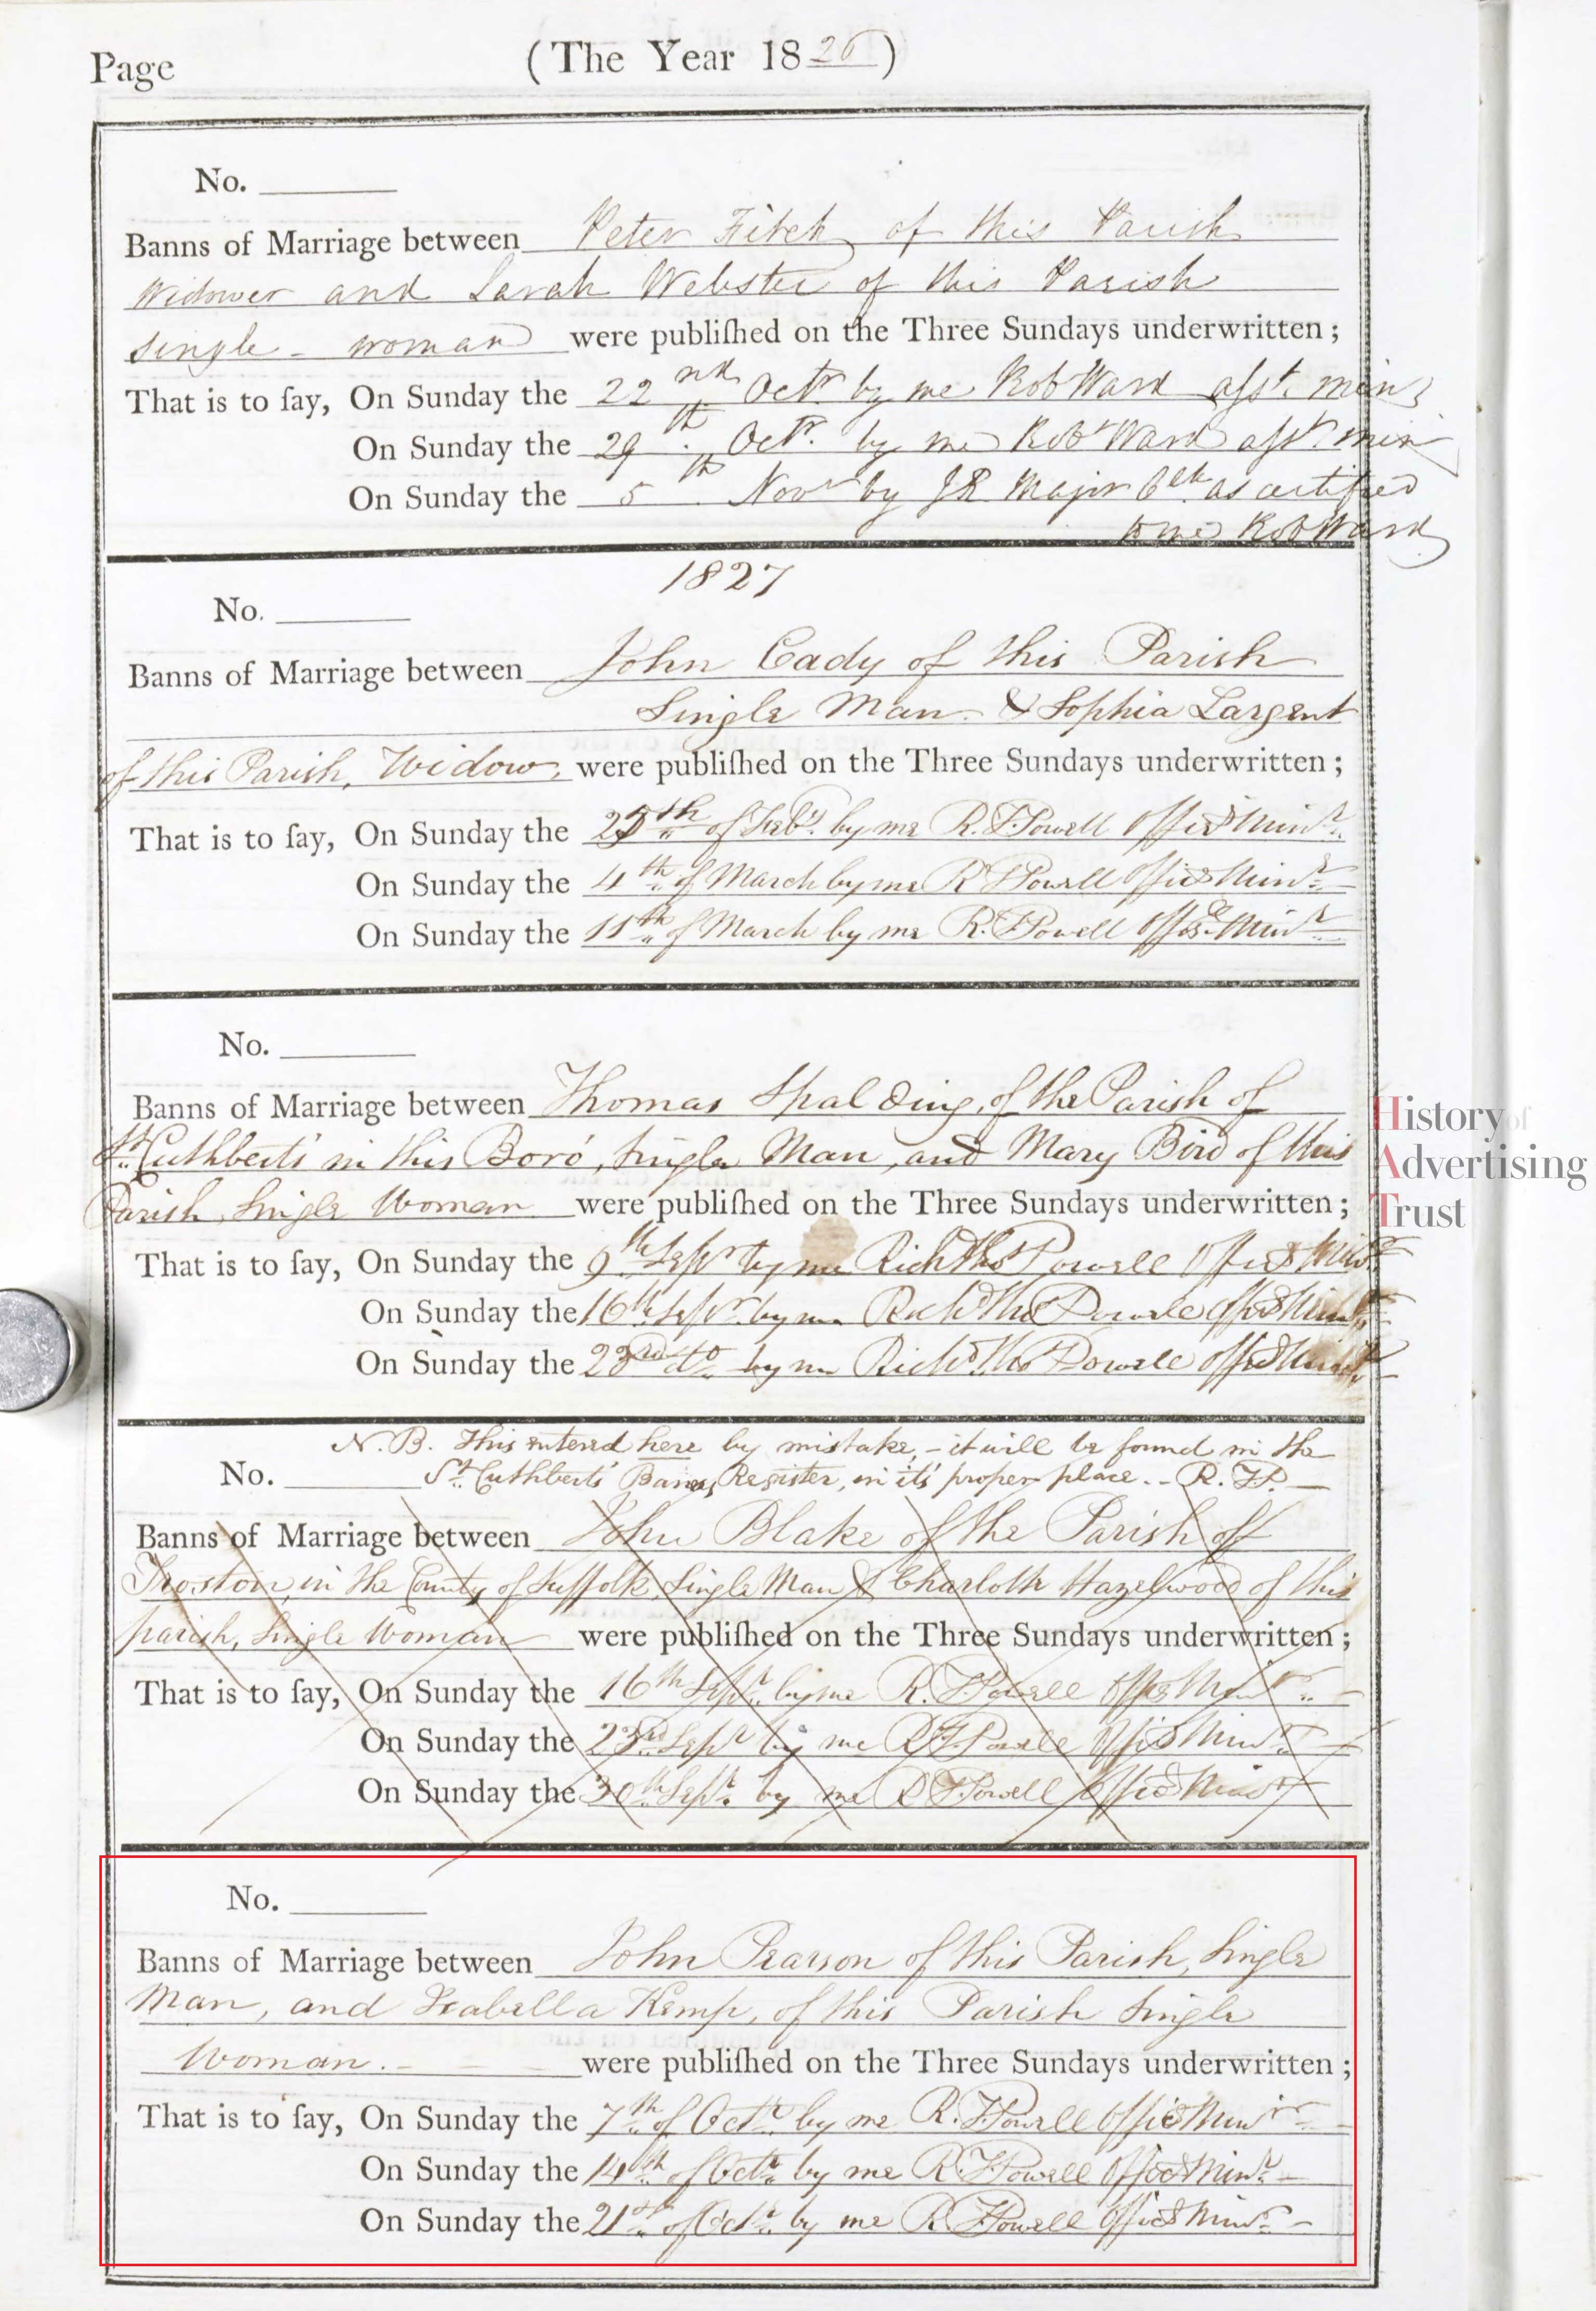 Page
(The Year 1826)
No.
Banns of Marriage between Peter Fitch of this Parish
Widower and Sarah Webster of this Parish
single - woman were publiſhed on the Three Sundays underwritten;
That is to ſay, On Sunday the 22nd Octr by me Rob Ward asst. min
On Sunday the 29th Octr. by me Robt Ward asst. min
On Sunday the 5th Novr by J R Major Clk as certified
to me Rob Ward
1827
No.
Banns of Marriage between John Cady of this Parish
Single Man & Sophia Largent
of this Parish, Widow, were publiſhed on the Three Sundays underwritten;
That is to ſay, On Sunday the 25th of Feby. by me R. T. Powell Officg Minr.
On Sunday the 4th of March by me R T Powell Officg Minr.
On Sunday the 11th of March by me R. T. Powell Officg Minr
No.
Banns of Marriage between Thomas Spalding, of the Parish of
St. Cuthberts' in this Boro', Single Man, and Mary Bird of this
Parish, Single Woman were publiſhed on the Three Sundays underwritten;
That is to ſay, On Sunday the 9th Sepr by me Richd Thos Powell Officg Minr
On Sunday the 16th Sepr by me Richd Thos Powell Officg Minr
On Sunday the 23rd do by me Richd Thos Powell Officg Minr
N.B. This entered here by mistake, - it will be found in the
No. St. Cuthberts' Banns Register, in it's proper place. - R.T.P. -
Banns of Marriage between John Blake of the Parish of
Troston, in the County of Suffolk, Single Man & Charlotte Hazelwood of this
parish, Single Woman were publiſhed on the Three Sundays underwritten;
That is to ſay, On Sunday the 16th Sepr. by me R. T. Powell Officg Minr.
On Sunday the 23rd Sepr by me R T Powell Officg Minr.
On Sunday the 30th Sepr. by me R T Powell Officg Minr
No.
Banns of Marriage between John Pearson of this Parish, Single
Man, and Isabella Kemp, of this Parish Single
Woman. - were publiſhed on the Three Sundays underwritten;
That is to ſay, On Sunday the 7th of Octr. by me R. T. Powell Officg Minr
On Sunday the 14th of Octr. by me R. T. Powell Officg Minr. -
On Sunday the 21st of Octr. by me R T Powell Officg Minr. -
History of
Advertising
Trust